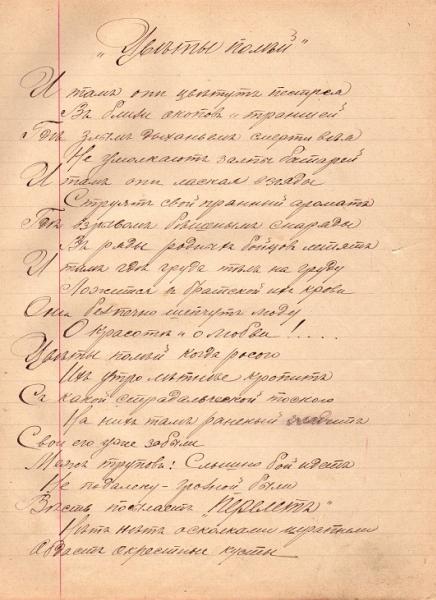 „Цвѣты полей"
И тамъ они цвѣтутъ пестрея
Въ близи окоповъ и траншей
Гдѣ злымъ дыханьемъ смерти вея
Не умолкаютъ залпы батарей
И тамъ они лаская взгляды
Струятъ свой пряный ароматъ
Гдѣ взрывомъ бѣшенымъ снаряды
Въ ряды родныхъ бойцовъ летятъ
И тамъ гдѣ груда тѣлъ на груду
Ложится въ братской ихъ крови
Они безпечно шепчутъ люду
О красотѣ и о любви!....
Цвѣты полей когда росою
Ихъ утро лѣтнее кропитъ
Съ какой страдальческой тоскою
На нихъ тамъ раненый
Свои его уже забыли
Межъ труповъ! Слышно бой идетъ
Не подалеку - грозной были
Вѣсть посылаетъ „перелетъ"
Нѣтъ нѣтъ осколками шрапнели
Обдастъ окрестные кусты